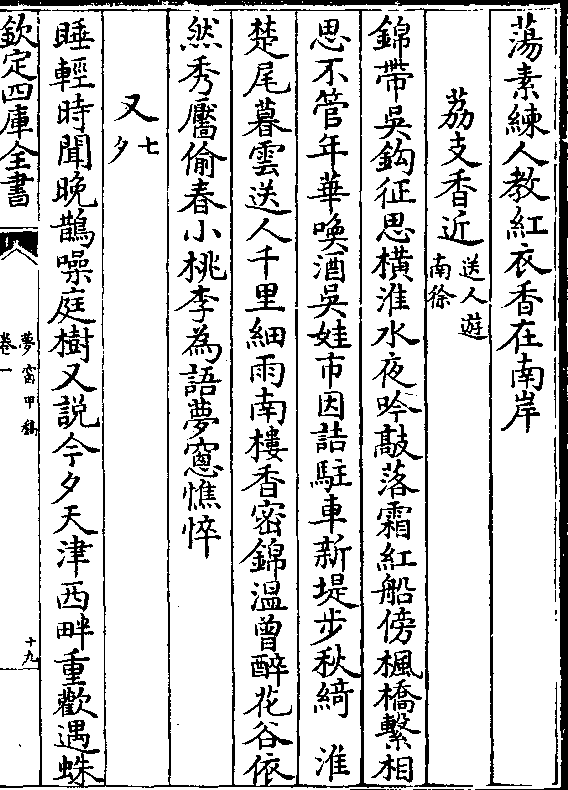 蕩素練人教紅衣香在南岸
荔支香近 送人遊南徐
錦帶吳鈎征思橫淮水夜吟敲落霜紅船傍楓橋繫相
思不管年華喚酒吳娃市因話駐車新堤步秋綺 淮
楚尾暮雲送人千里細雨南樓香密錦溫曾醉花谷依
然秀靨偷春小桃李為語夢窻憔悴
又 七夕
睡輕時聞晚鵲噪庭樹又說今夕天津西畔重歡遇蛛
欽定四庫全書
夢窗甲稿
卷一
十九